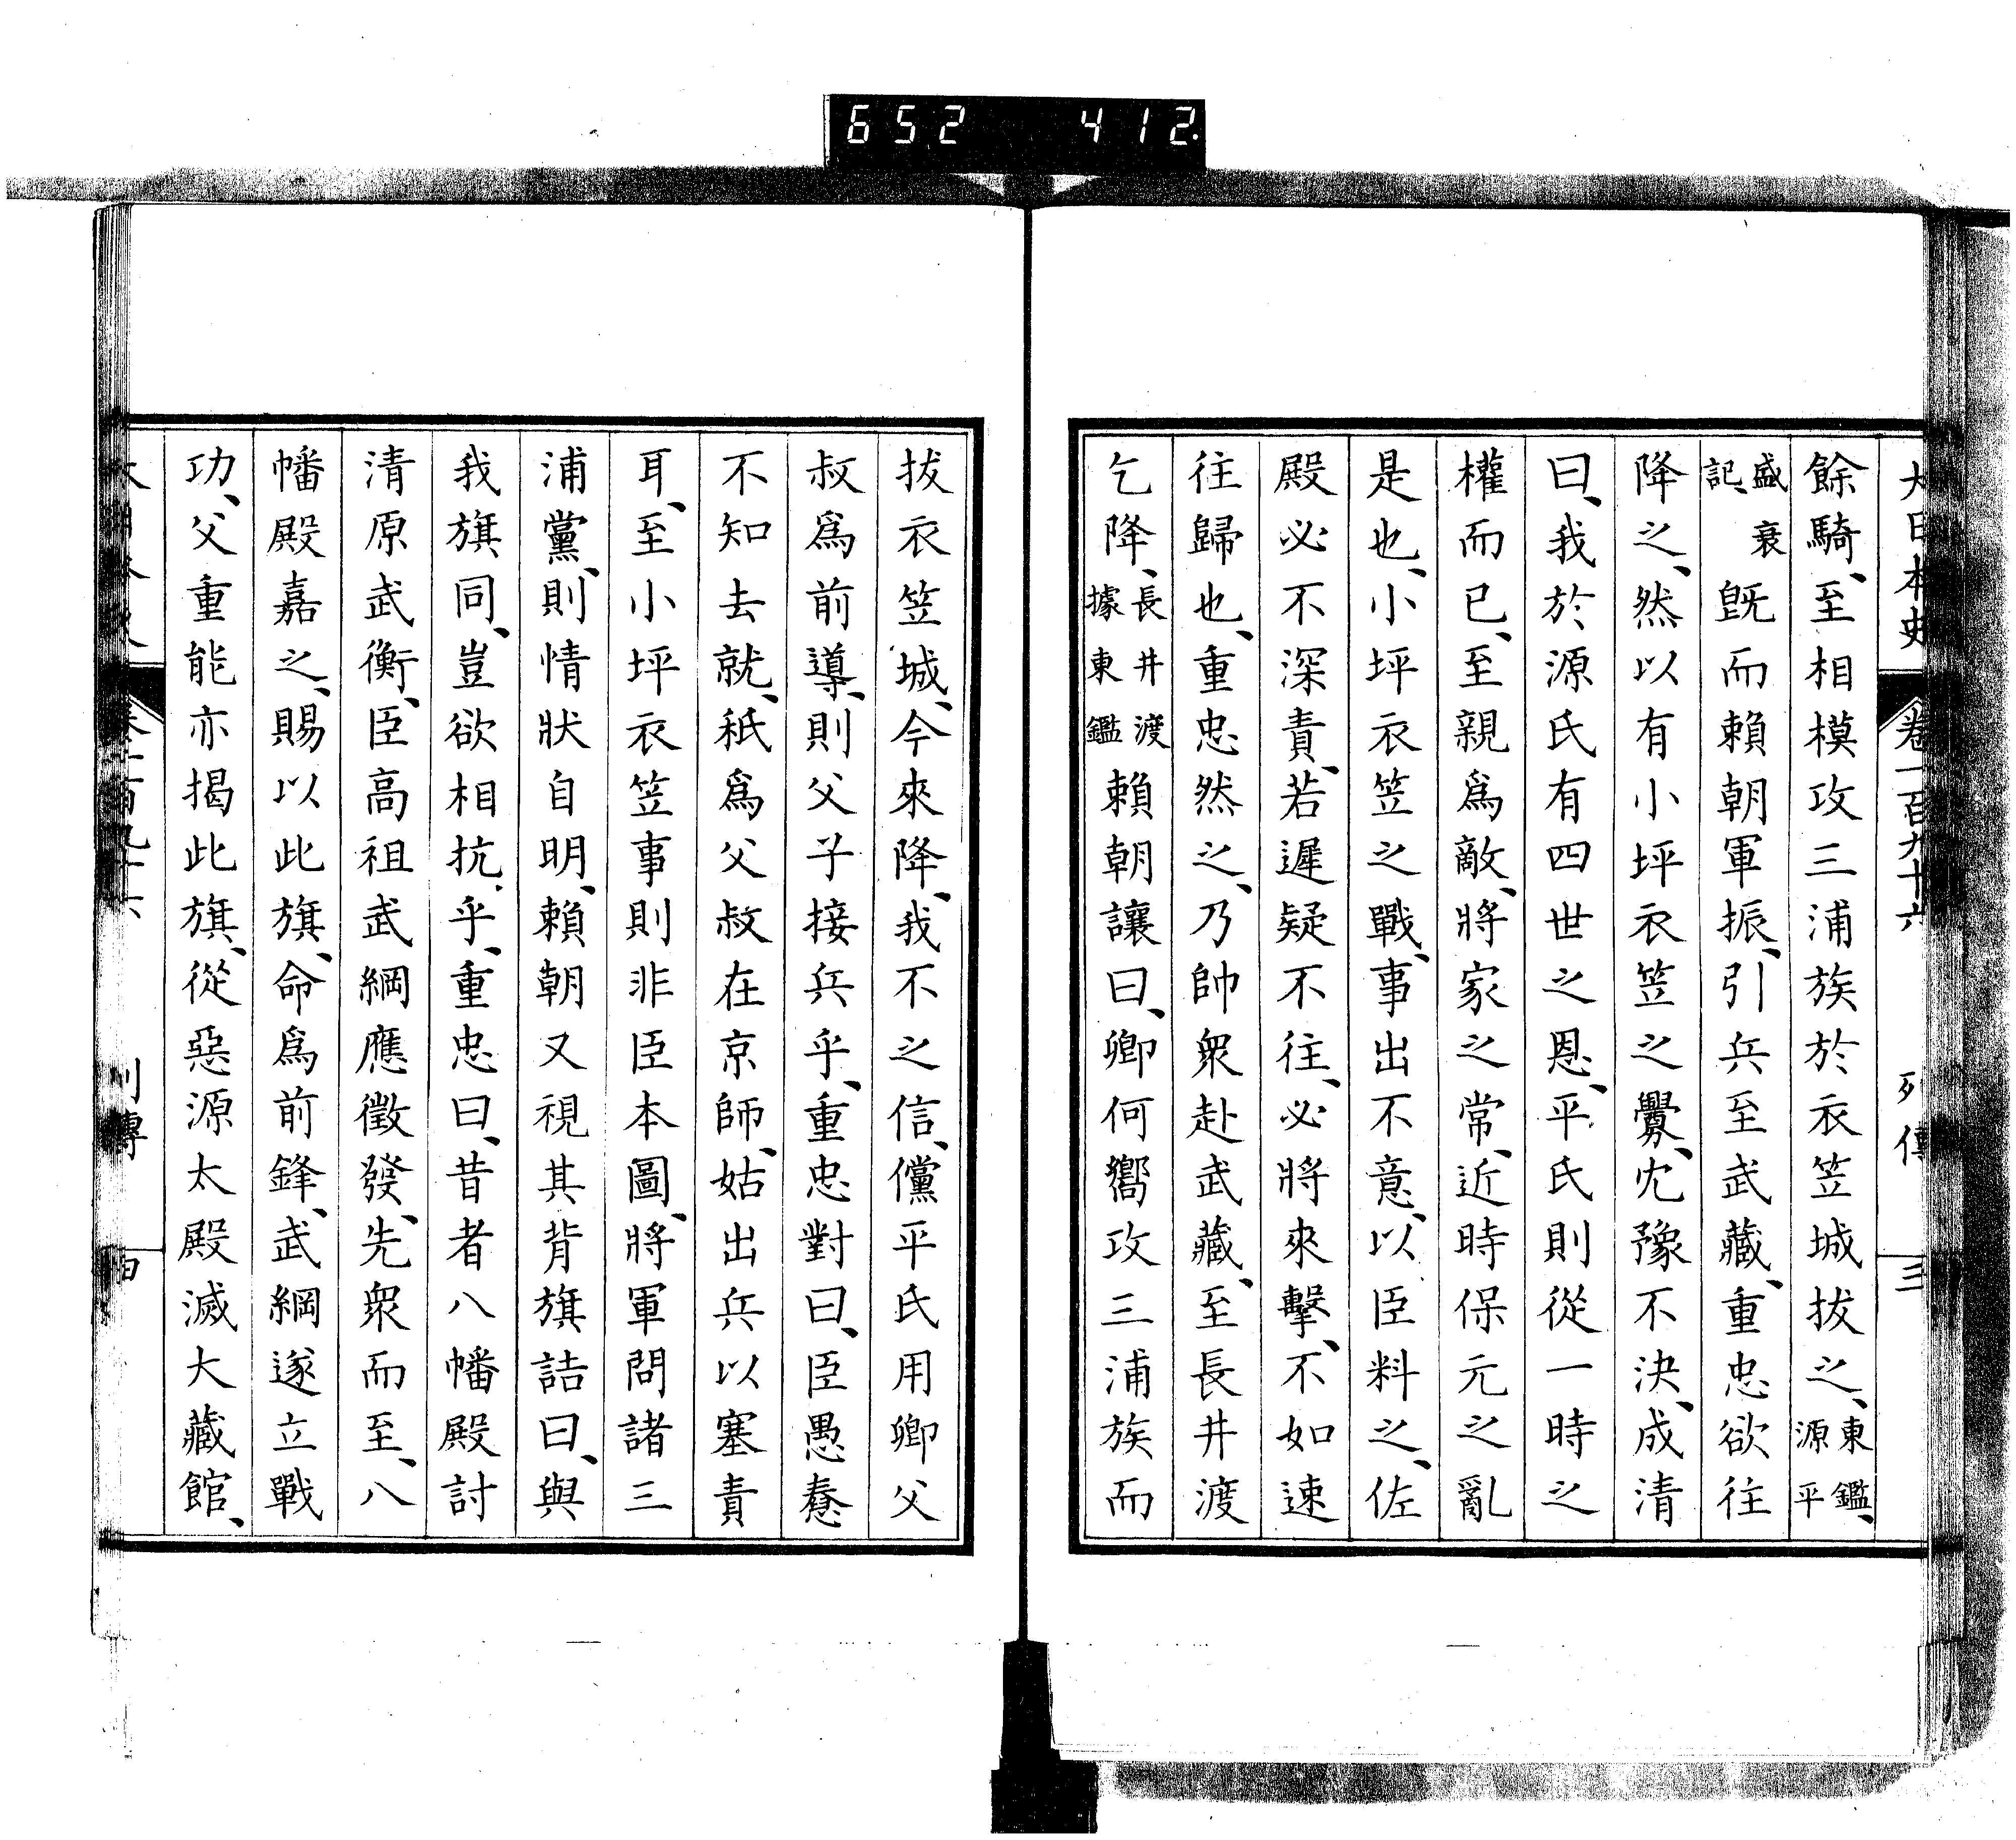 652 412.
大日本史 卷一百九十六 列傳 三
餘騎、至相模攻三浦族於衣笠城拔之、東鑑、源平
盛衰記、旣而賴朝軍振、引兵至武藏、重忠欲往
降之、然以有小坪衣笠之釁、冘豫不決、成清
曰、我於源氏有四世之恩、平氏則從一時之
權而已、至親爲敵、將家之常、近時保元之亂
是也、小坪衣笠之戰、事出不意、以臣料之、佐
殿必不深責、若遲疑不往、必將來擊、不如速
往歸也、重忠然之、乃帥衆赴武藏、至長井渡
乞降、長井渡據東鑑賴朝讓曰、卿何嚮攻三浦族而
拔衣笠城、今來降、我不之信、儻平氏用卿父
叔爲前導、則父子接兵乎、重忠對曰、臣愚惷
不知去就、秖爲父叔在京師、姑出兵以塞責
耳、至小坪衣笠事則非臣本圖、將軍問諸三
浦黨、則情狀自明、賴朝又視其背旗詰曰、與
我旗同、豈欲相抗乎、重忠曰、昔者八幡殿討
清原武衡、臣高祖武綱應徵發、先衆而至、八
幡殿嘉之、賜以此旗、命爲前鋒、武綱遂立戰
功、父重能亦揭此旗、從惡源太殿滅大藏館、
列傳